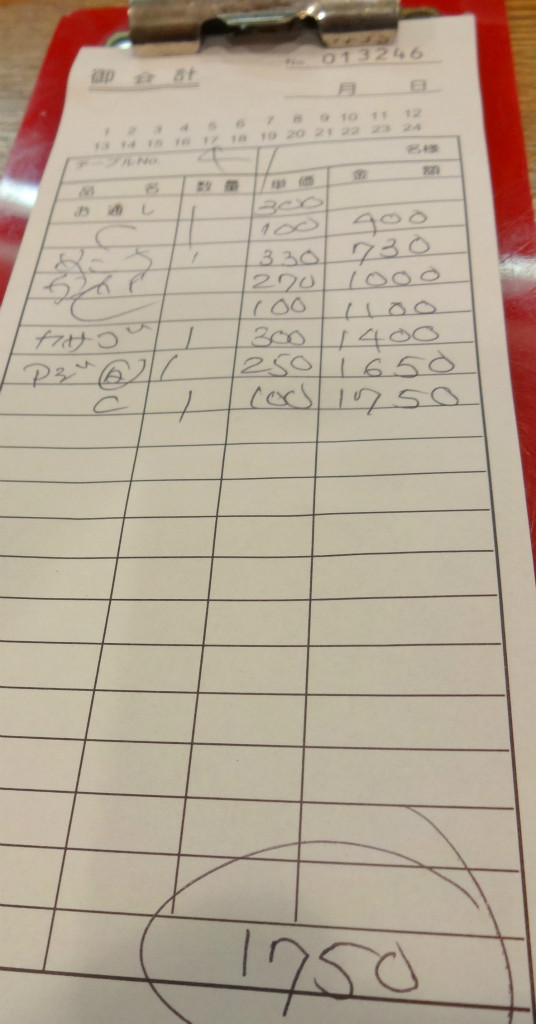 No. 013246
御会計
月 日
1 2 3 4 5 6 7 8 9 10 11 12
13 14 15 16 17 18 19 20 21 22 23 24
テーブルNo. 名様
品名 数量 単価 金額
お通し 1 300
C 1 100 400
1 330 730
270 1000
C 100 1100
カサゴ 1 300 1400
アジ 1 250 1650
C 1 100 1750
1750